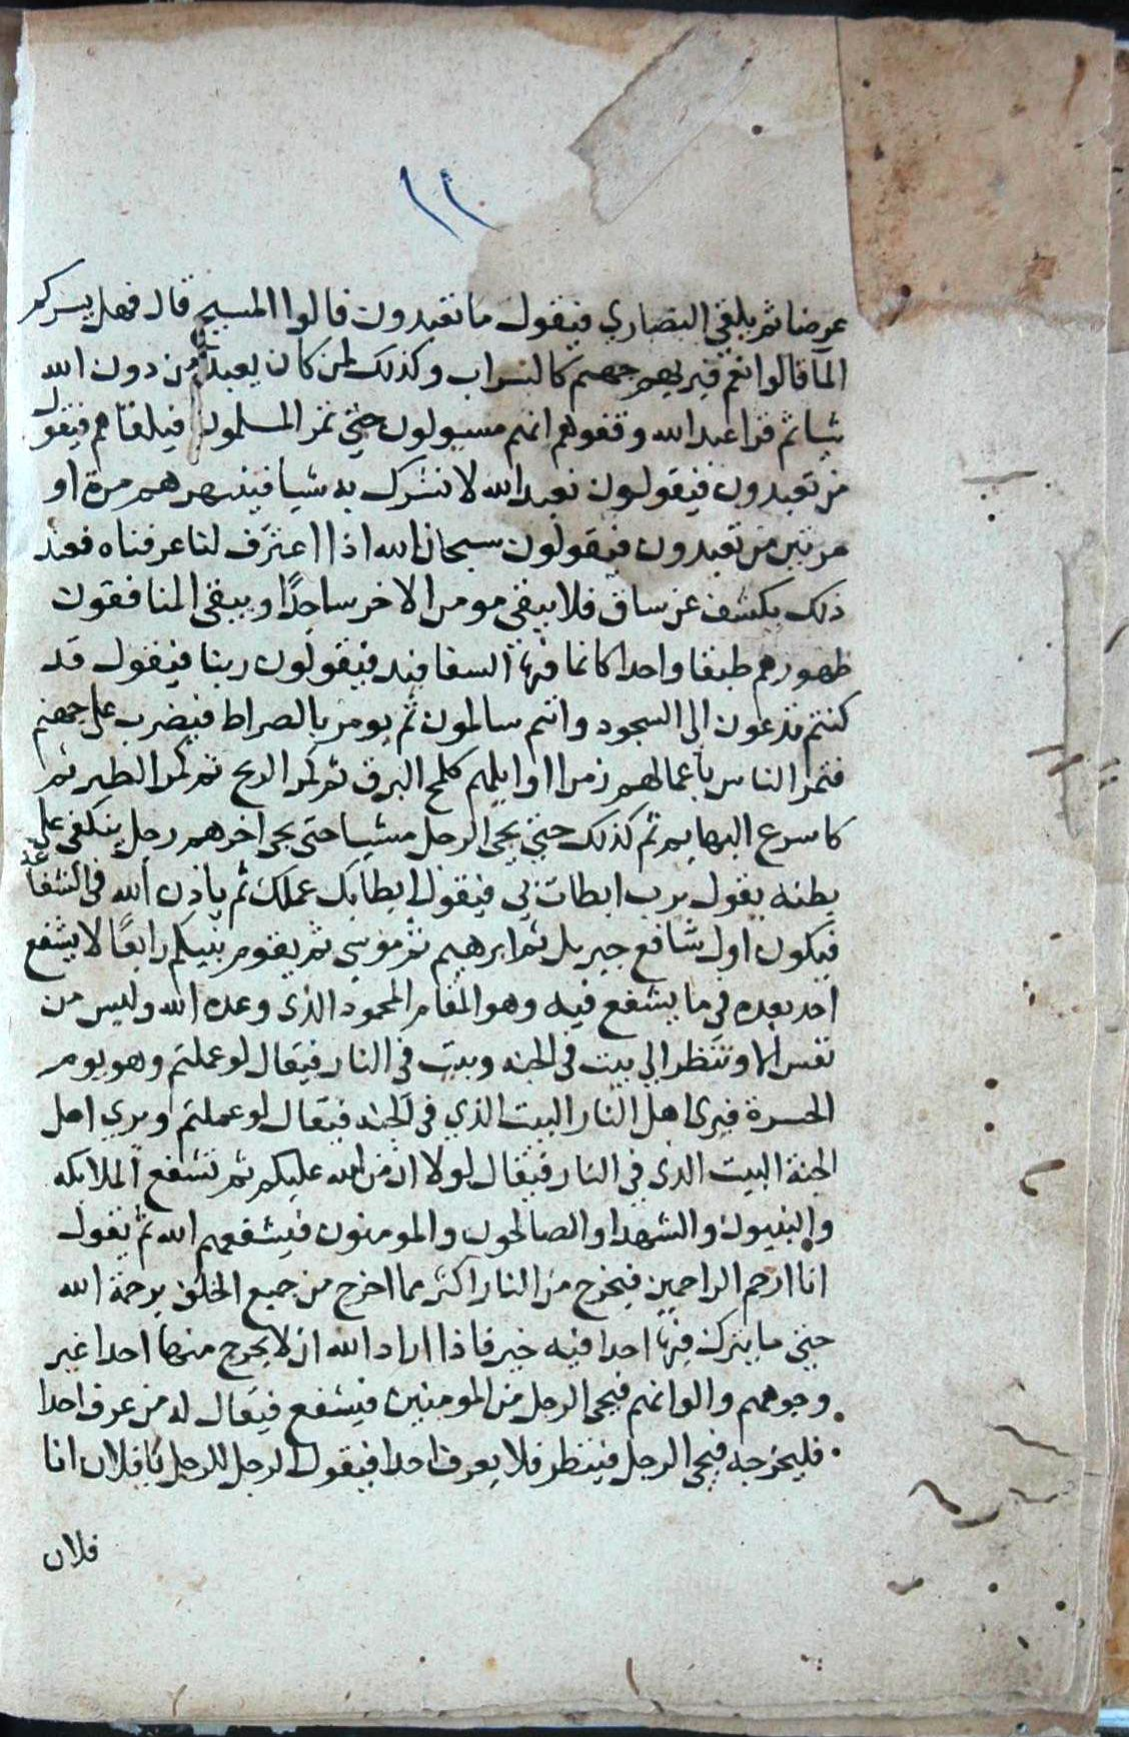 ١١
عرضا ثم يلقي النصاري فيقول ما تعبدون قالوا المسيح قال فهل يسركم
الما قالوا نعم فيريهم جهنم كالسراب وكذلك لمن كان يعبد من دون الله
شيا ثم قرا عبد الله وقفوهم انهم مسيولون حتى تمر المسلمون فيلقاهم فيقول
من تعبدون فيقولون نعبد الله لا نشرك به شيا فينتهرهم مرة او
مرتين من تعبدون فيقولون سبحان الله اذا اعترف لنا عرفناه فعند
ذلك يكشف عن ساق فلا يبقى مومن الا خر ساجدًا ويبقى المنافقون
ظهورهم طبقا واحدا كانما فيها السفافيد فيقولون ربنا فيقول قد
كنتم تدعون الى السجود وانتم سالمون ثم يومر بالصراط فيضرب على جهنم
فتمر الناس باعمالهم زمرا اوايلهم كلمح البرق ثم كمر الريح ثم كمر الطير ثم
كاسرع البهايم ثم كذلك حتى يجى الرجل مشيا حتى يجى اخرهم رجل يتكفى على
بطنه يقول يرب ابطات بي فيقول ابطا بك عملك ثم ياذن الله في الشفاعة
فيكون اول شافع جبريل ثم ابرهيم ثم موسى ثم يقوم نبيكم رابعًا لا يشفع
احد بعده في ما يشفع فيه وهو المقام المحمود الذي وعده الله وليس من
نفس الا وتنظر الي بيت في الجنه وبيت في النار فيقال لو عملتم وهو يوم
الحسرة فيرى اهل النار البيت الذي في الجنه فيقال لو عملتم ويري اهل
الجنة البيت الذي في النار فيقال لولا ان من الله عليكم ثم تشفع الملايكه
والنبيون والشهدا والصالحون والمومنون فيشفعهم الله ثم يقول
انا ارحم الراحمين فيخرج من النار اكثر مما اخرج من جميع الخلق برحمة الله
حتى ما يترك فيها احدا فيه خير فاذا اراد الله ان لا يخرج منها احدا غير
وجوههم والوانهم فيجى الرجل من المومنين فيشفع فيقال له من عرف احدا
فليخرجه فيجى الرجل فينظر فلا يعرف احدا فيقول الرجل للرجل يا فلان انا
فلان